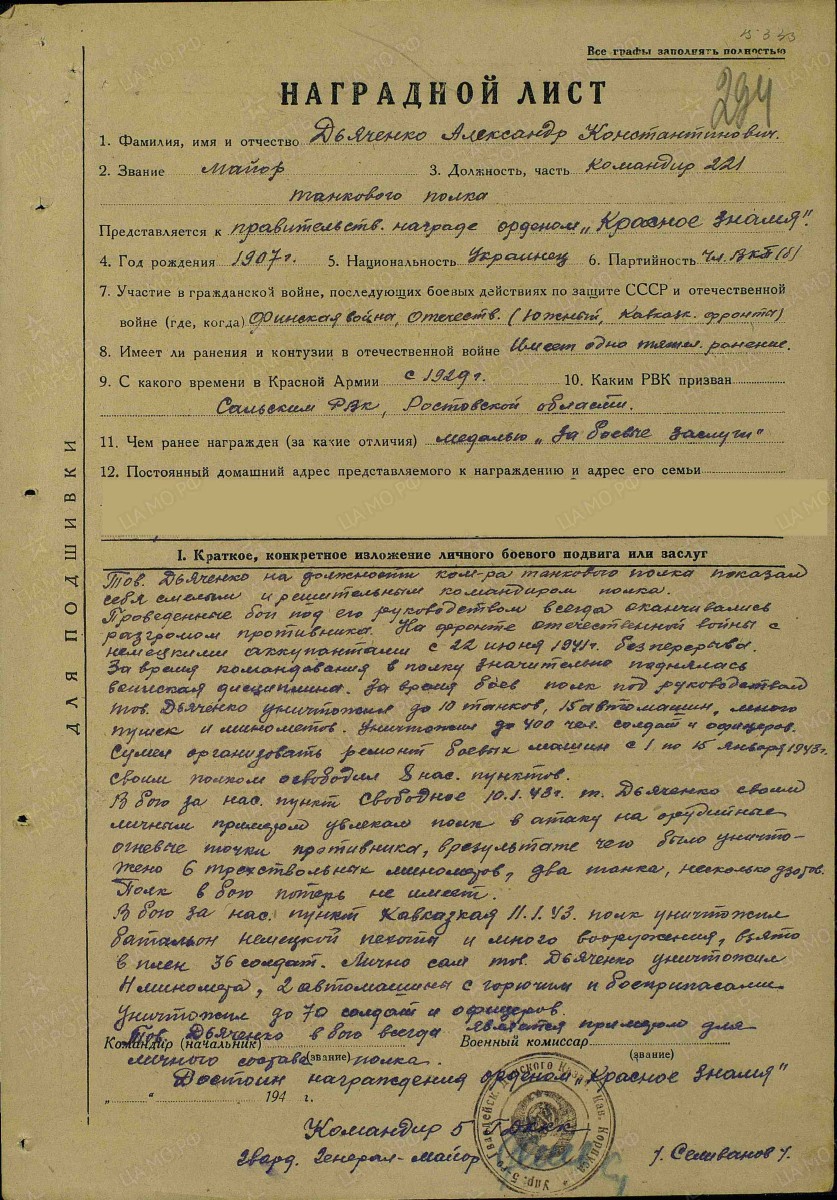 15 3 43
Все графы заполнять полностью
294
НАГРАДНОЙ ЛИСТ
1. Фамилия, имя и отчество Дьяченко Александр Константинович.
2. Звание майор 3. Должность, часть командир 221
танкового полка
Представляется к правительств. награде орденом „Красное знамя".
4. Год рождения 1907 г. 5. Национальность Украинец 6. Партийность чл. ВКП(б)
7. Участие в гражданской войне, последующих боевых действиях по защите СССР и отечественной
войне (где, когда) Финская война, Отечеств. (Южный, Кавказк. фронта)
8. Имеет ли ранения и контузии в отечественной войне Имеет одно тяжел. ранение.
9. С какого времени в Красной Армии с 1929 г. 10. Каким РВК призван
Сальским РВК, Ростовской области.
11. Чем ранее награжден (за какие отличия) медалью „За боевые заслуги"
12. Постоянный домашний адрес представляемого к награждению и адрес его семьи
ДЛЯ ПОДШИВКИ
I. Краткое, конкретное изложение личного боевого подвига или заслуг
Тов. Дьяченко на должности ком-ра танкового полка показал
себя смелым и решительным командиром полка.
Проведенные бои под его руководством всегда оканчивались
разгромом противника. На фронте отечественной войны с
немецкими аккупантами с 22 июня 1941 г. без перерыва.
За время командования в полку значительно поднялась
воинская дисциплина. За время боев полк под руководством
тов. Дьяченко уничтожил до 10 танков, 15 автомашин, много
пушек и минометов. Уничтожил до 400 чел. солдат и офицеров.
Сумел организовать ремонт боевых машин с 1 по 15 января 1943 г.
своим полком освободил 8 нас. пунктов.
В бою за нас. пункт Свободное 10.1.43 г. т. Дьяченко своим
личным примером увлекал полк в атаку на орудийные
огневые точки противника, врезультате чего было уничто-
жено 6 трехствольных минометов, два танка, несколько дзотов.
Полк в бою потерь не имеет.
В бою за нас. пункт Кавказкая 11.1.43. полк уничтожил
батальон немецкой пехоты и много вооружения, взято
в плен 36 солдат. Лично сам тов. Дьяченко уничтожил
4 миномета, 2 автомашины с горючим и боеприпасами
уничтожил до 70 солдат и офицеров.
Тов. Дьяченко в бою всегда является примером для
Командир (начальник) Военный комиссар
личного состава полка.
(звание) (звание)
Достоин награждения орденом „Красное знамя"
„ " 194 г.
Командир 5 ГДККК
Гвард. Генерал-майор /Селиванов/.